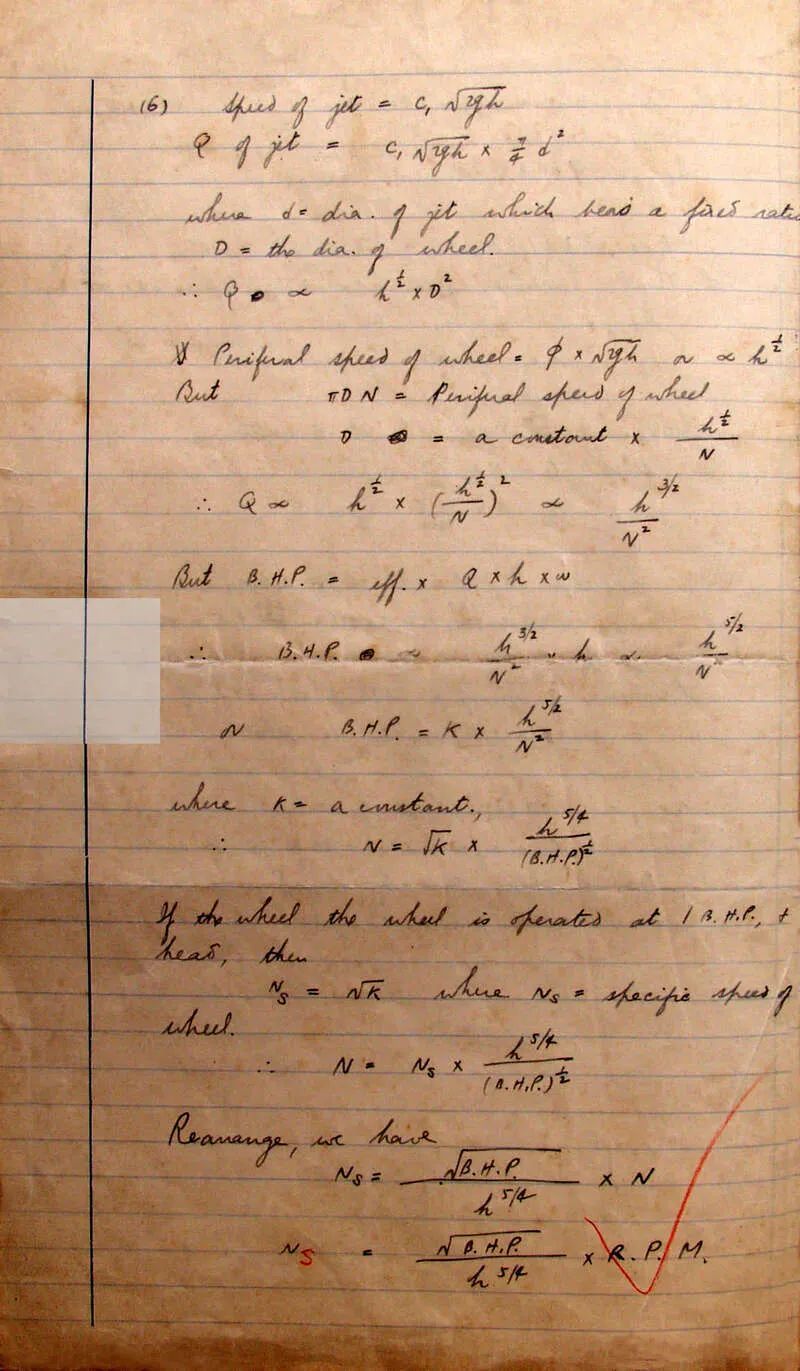 (6) Speed of jet = C₁ √2gh
Q of jet = C₁ √2gh × π/4 d²
where d = dia. of jet which bears a fixed ratio
D = the dia. of wheel.
∴ Q ∝ h^½ × D²
Perifual speed of wheel = φ × √2gh or ∝ h^½
But πDN = Perifual speed of wheel
D = a constant × h^½/N
∴ Q ∝ h^½ × (h^½/N)² ∝ h^3/2/N²
But B.H.P. = eff. × Q × h × w
∴ B.H.P. ∝ h^3/2/N² × h ∝ h^5/2/N
or B.H.P. = K × h^5/2/N²
where K = a constant.,
∴ N = √K × h^5/4/(B.H.P.)^½
If the wheel the wheel is operated at 1 B.H.P., +
head, then
N_S = √K where N_S = specific speed of
wheel.
∴ N = N_S × h^5/4/(B.H.P.)^½
Rearange, we have
N_S = √B.H.P./h^5/4 × N
N_S = √B.H.P./h^5/4 × R.P.M.